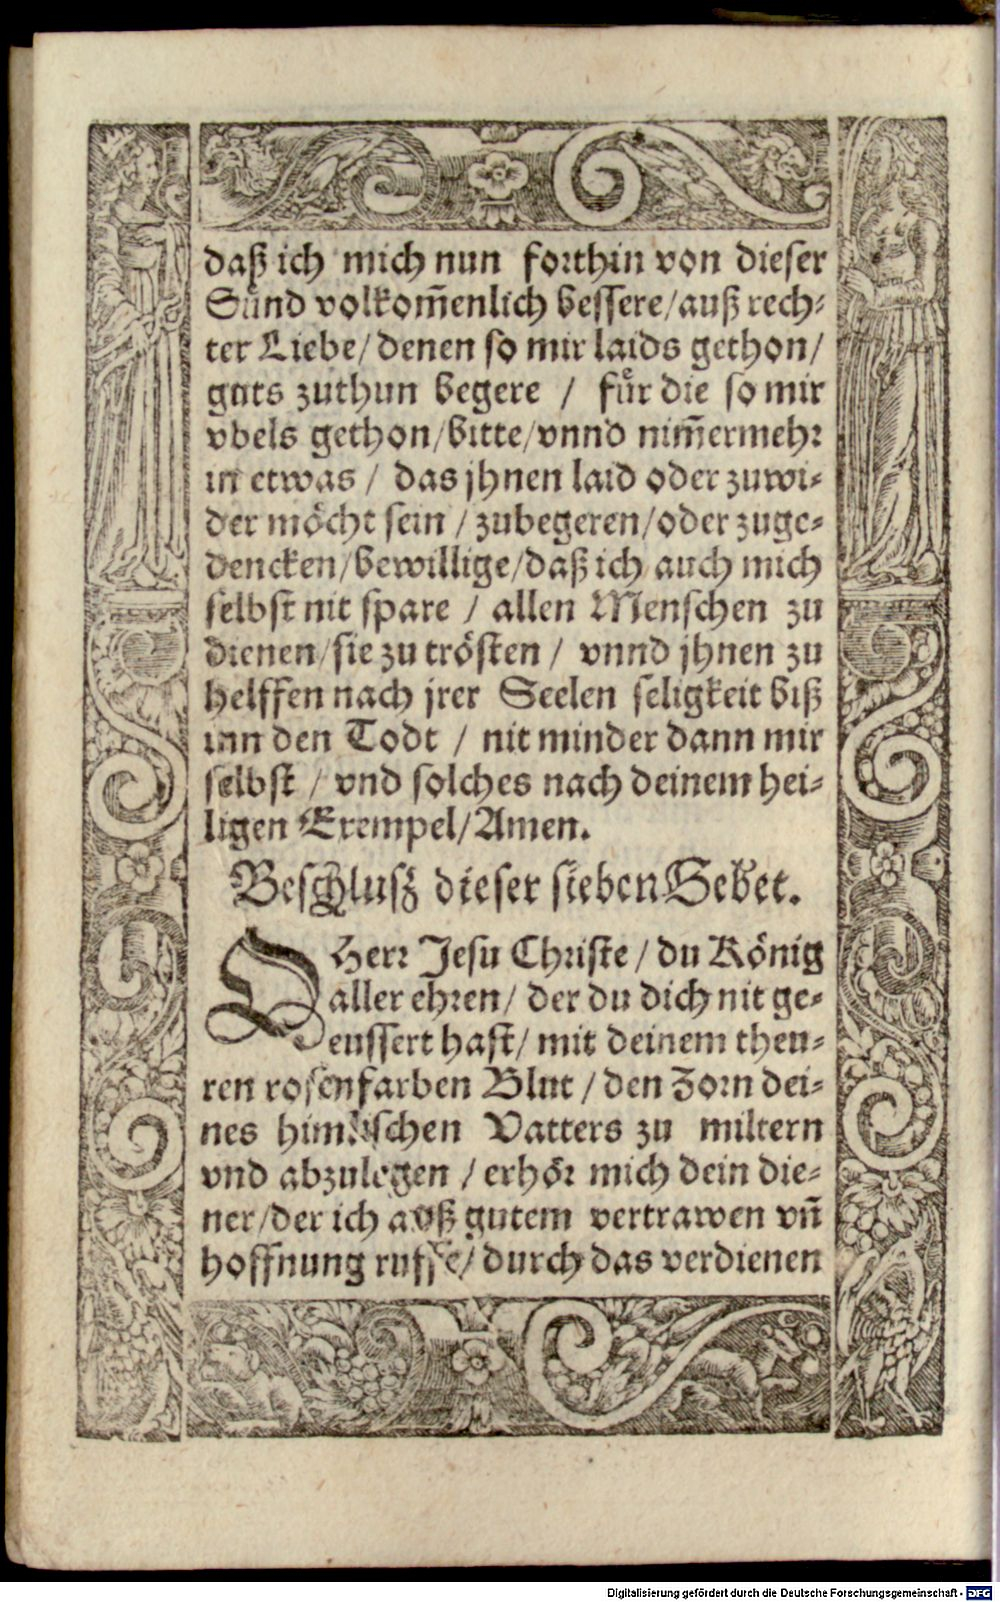 daß ich mich nun forthin von dieser
Sünd volkom̃enlich bessere/auß rech-
ter Liebe/ denen so mir laids gethon/
guts zuthun begere / fuͤr die so mir
vbels gethon/bitte/vnnd nim̃ermehr
in etwas / das jhnen laid oder zuwi-
der moͤcht sein / zubegeren/oder zuge-
dencken/bewillige/daß ich auch mich
selbst nit spare / allen Menschen zu
dienen/sie zu troͤsten / vnnd jhnen zu
helffen nach jrer Seelen seligkeit biß
inn den Todt / nit minder dann mir
selbst / vnd solches nach deinem hei-
ligen Exempel/Amen.
Beschlusz dieser sieben Gebet.
O Herr Jesu Christe / du Koͤnig
aller ehren/ der du dich nit ge-
eussert hast/ mit deinem theu-
ren rosenfarben Blut / den Zorn dei-
nes himlischen Vatters zu miltern
vnd abzulegen / erhoͤr mich dein die-
ner/der ich auß gutem vertrawen vñ
hoffnung ruffe/ durch das verdienen
Digitalisierung gefördert durch die Deutsche Forschungsgemeinschaft - DFG